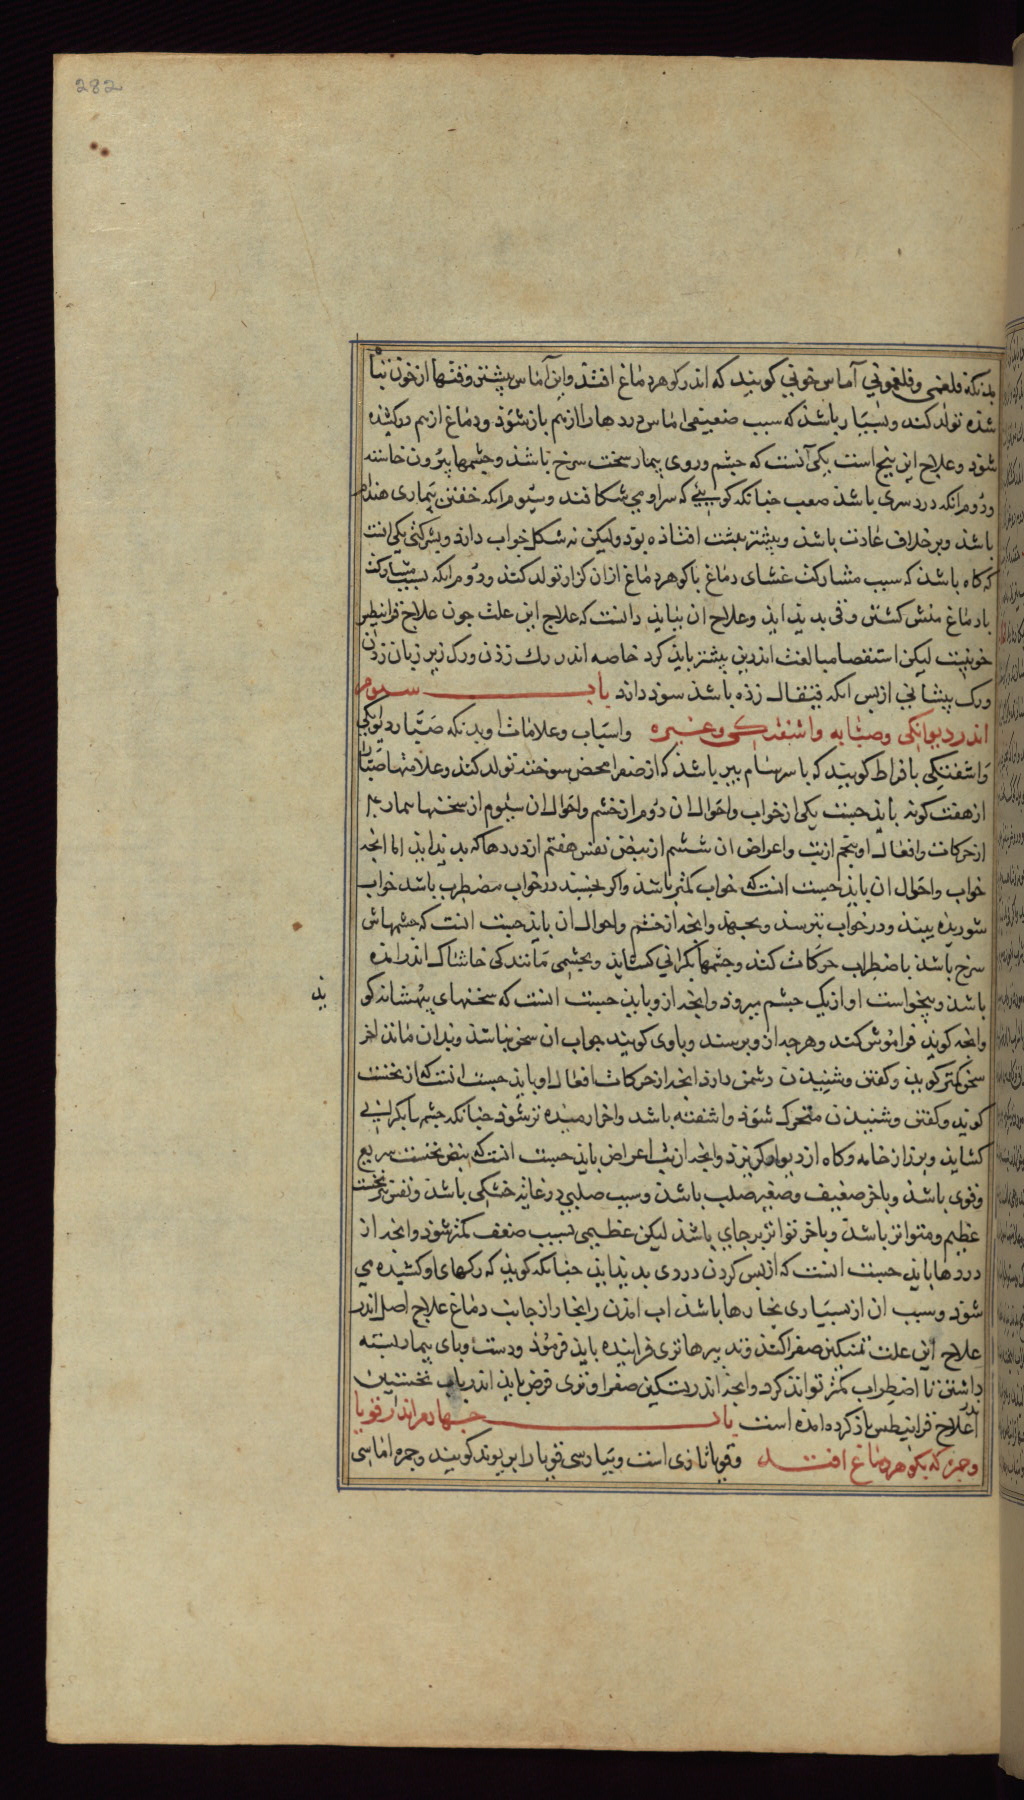 282
بدنکه فلغمی وفلغمونی آماس خونی کویند که اندر کوهر دماغ افتذ واین آماس بیشتر وقتها ازخون تباه
شذه تولد کند وبسیار باشذ که سبب ضعیفی اماس درد هارا ازیم باز شوذ ودماغ ازیم درکشذه
شوذ وعلاج این پنج است یکی آنست که چشم وروی بیمار سخت سرخ باشذ وچشمها بیرون خاسته
ودوم انکه درد سری باشذ صعب جنانکه کویی که سراو می شکافند وسیوم انکه خفتن بیماری هندام
باشذ وبرخلاف عادت باشذ وبیشتر بپشت افتاذه بوذ ولیکن نه شکل خواب دارذ
که کاه باشذ که سبب مشارکت غشای دماغ با کوهر دماغ ازان کزار تولد کند ودوم انکه بسبب مشارکت
بادماغ منش کشتن وقی بدید ایذ وعلاج ان بباید دانست که علاج این علت جون علاج قرانیطس
خونیست لیکن استقصا مبالغت اندرین بیشتر بایذ کرد خاصه اندر رک زذن ورک زیر زبان زذن
ورک پیشانی ازپس انکه قیفال زذه باشذ سوذ دارذ باب سیوم
اندر دیوانکی وصبابه واشفتکی وغیره واسباب وعلامات او بدنکه صبارا دیوانکی
واشفتکی بافراط کویند که با سرسام بیر باشذ که ازصفرا محض سوخته تولد کند وعلامتها صبارا
ازهفت کونه بایذ جست یکی ازخواب واحوال ان دوم ازخشم واحوال ان سیوم ازسخنها بیمار
ازحرکات وافعال او پنجم ازتب واعراض ان ششم ازنبض نفس هفتم ازدردها که بدید ایذ اما انجه
خواب واحوال ان بایذ جست انست که خواب کمتر باشذ واکر بخسبد درخواب مضطرب باشد خواب
شوریذه بیند ودر خواب بترسذ وبجهذ وانجه ازخشم واحوال ان بایذ جست انست که چشمهاش
سرخ باشذ باضطراب حرکات کند وچشمها بکرانی کشایذ وبچشمی مانند کی خاشاک اندرامذه
باشذ وبیخواست او ازیک چشم میرود وانجه ازو بایذ جست انست که سخنهای بیهشانه کو
ید
وانجه کوید فراموش کند وهرجه ازو برسند وباوی کویند جواب ان سخن نباشذ وبدان ماند اخر
سخن کمتر کوید وکفتن وشنیدن دشمن دارذ انجه ازحرکات افعال او بایذ جست انست که از نخست
کوید وکفتن وشنیدن متحرک شوذ واشفته باشد واخر ارمیده تر شوذ جنانکه چشم بکرانی
کشایذ وبراز خامه وکاه از دیوار بر تزد وانجه ازتب اعراض بایذ جست انست که نبض نخست سریع
وقوی باشذ وباخر ضعیف وصغیر صلب باشذ وسبب صلبی دروغایة خشکی باشذ ونفس نخست
عظیم ومتواتر باشذ وباخر تواتر برجای باشذ لیکن عظیمی بسبب ضعف کمتر شوذ وانجه از
دردها بایذ جست انست که ازپس کردن دردی بدید ایذ جنانکه کویذ که رکهای او کشیده می
شوذ وسبب ان ازبسیاری بخارها باشذ اب امذن رابخار ازجانب دماغ علاج اصل اندر
علاج این علت تسکین صفرا کند وتدبیرها تری فزاینده بایذ فرمود ودست وپای بیمار بسته
داشتن تا اضطراب کمتر تواند کرد وانجه اندر تسکین صفرا وتری فرض بایذ اندر باب نخستین
اندر علاج قرانیطس یاذکرده امذه است باب جهارم اندر قوبا
وجمره که بکوهر دماغ افتد وقوبا تازی است وبپارسی قوبا را بریوند کویند وجمره اماسی